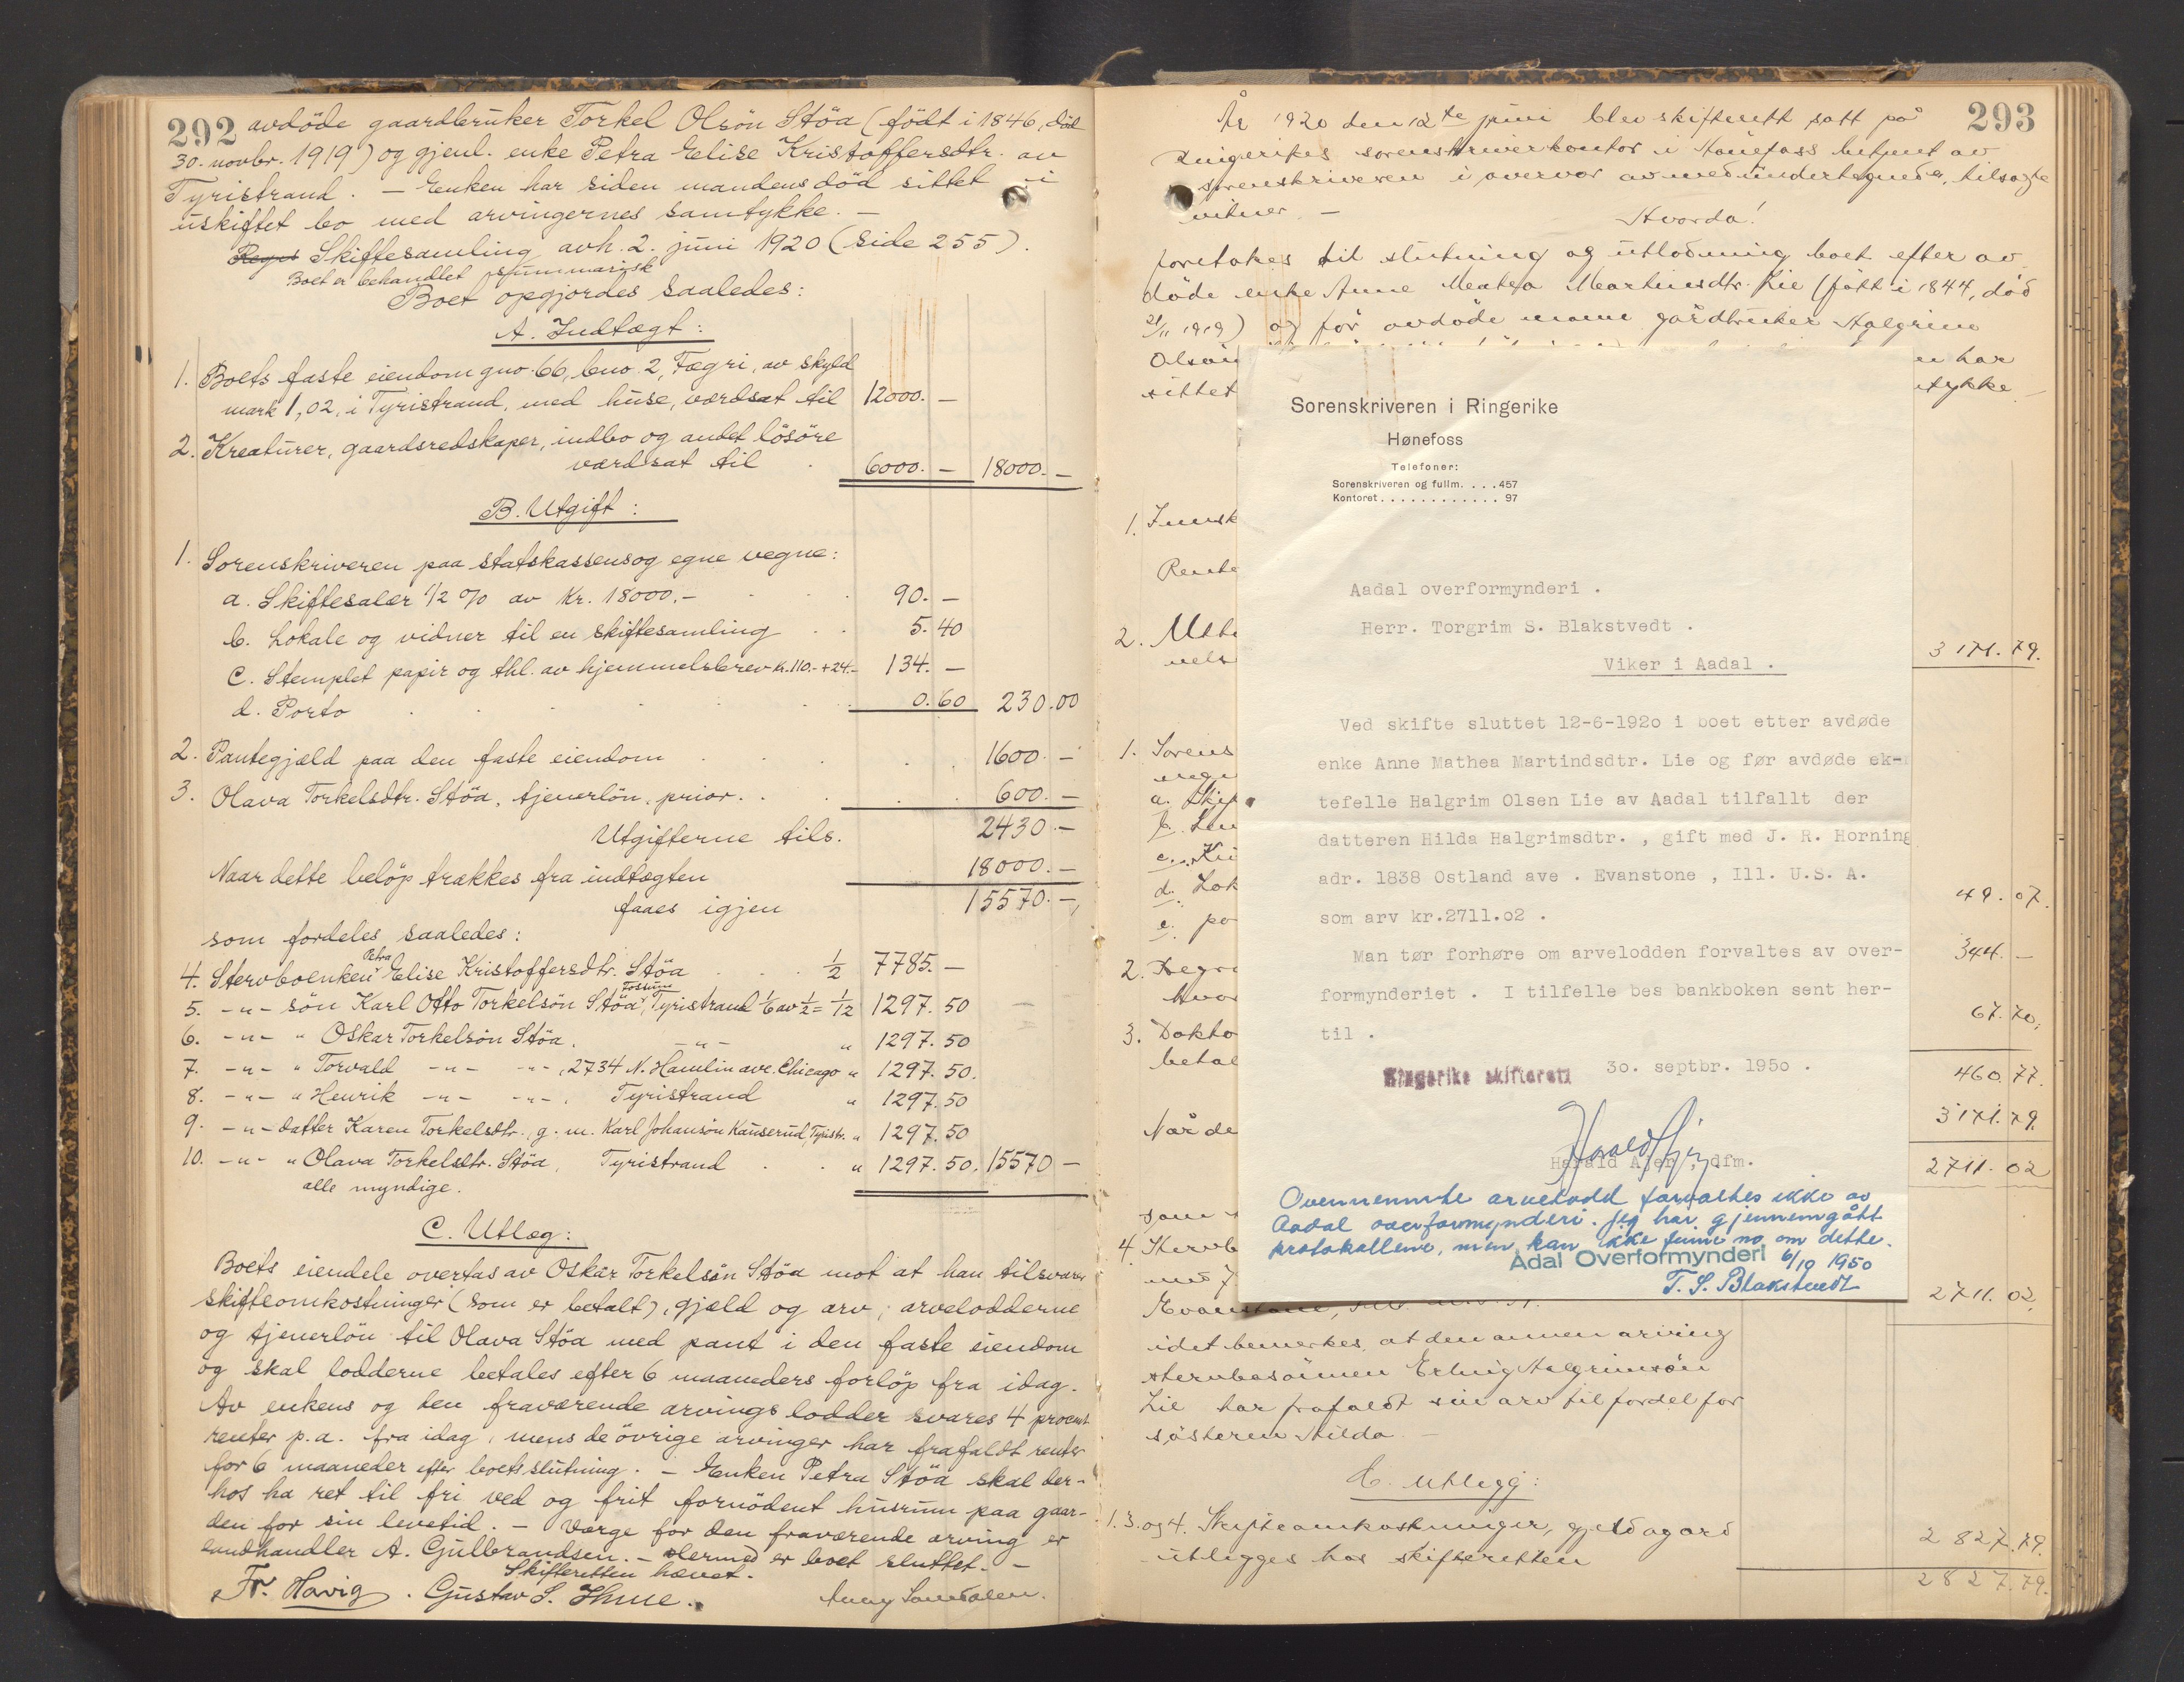 292
avdöde gaardbruker Torkel Olsön Stöa (födt i 1846, död
30. novbr. 1919) og gjenl. enke Petra Elise Kristoffersdtr. av
Tyristrand. – Enken har siden mandens död sittet i
uskiftet bo med arvingernes samtykke. –
Skiftesamling avh. 2. juni 1920 (side 255).
Boet er behandlet summarisk
Boet opgjordes saaledes:
A. Indtægt:
1. Boets faste eiendom gno. 66, bno. 2, Fægri, av skyld
mark 1,02, i Tyristrand, med huse, værdsat til 12000. –
2. Kreaturer, gaardsredskaper, indbo og andet lösöre
værdsat til 6000. – 18000. –
B. Utgift:
1. Sorenskriveren paa statskassens og egne vegne:
a. Skiftesalær 1/2 % av Kr. 18000.– 90. –
b. Lokale og vidner til en skiftesamling 5.40
c. Stemplet papir og thl. av hjemmelsbrev Kr. 110.– + 24.– 134. –
d. Porto 0.60 230.00
2. Pantegjæld paa den faste eiendom 1600. –
3. Olava Torkelsdtr. Stöa, tjenerlön, prior. 600. –
Utgifterne tils. 2430.–
Naar dette belöp trækkes fra indtægten 18000. –
faaes igjen 15570. –
som fordeles saaledes:
4. Stervboenken Petra Elise Kristoffersdtr. Stöa 1/2 7785. –
5. -"- sön Karl Otto Torkelsön Stöa, Fossum Tyristrand 1/6 av 1/2 = 1/12 1297.50
6. -"- " Oskar Torkelsön Stöa, -"- " 1297.50
7. -"- " Torvald -"- -"-, 2734 N. Hamlin ave. Chicago " 1297.50.
8. -"- " Henrik -"- -"-, Tyristrand " 1297.50
9. -"- datter Karen Torkelsdtr., g. m. Karl Johansön Kauserud, Tyristr. " 1297.50
10. -"- " Olava Torkelsdtr. Stöa, Tyristrand " 1297.50. 15570 –
alle myndige.
C. Utlæg:
Boets eiendele overtas av Oskar Torkelsön Stöa mot at han tilsvarer
skifteomkostninger (som er betalt), gjæld og arv; arvelodderne
og tjenerlön til Olava Stöa med pant i den faste eiendom
og skal lodderne betales efter 6 maaneders forlöp fra idag.
Av enkens og den fraværende arvings lodder svares 4 procent
renter p.a. fra idag, mens de övrige arvinger har frafaldt renter
for 6 maaneder efter boets slutning. – Enken Petra Stöa skal der-
hos ha ret til fri ved og frit fornödent husrum paa gaar-
den for sin levetid. – Værge for den fraværende arving er
landhandler A. Gulbrandsen. – Hermed er boet sluttet. –
Skifteretten hævet.
Fr. Havig. Gustav S. Thue.
293
År 1920 den 12te juni blev skifterett satt på
Ringerikes sorenskriverkontor i Hönefoss betjent av
sorenskriveren i overvær av medundertegnede, tilsagte
vitner. –
Hvorda!
foretokes til slutning og utlodning boet efter av
döde enke Anne Matea Martinsdtr. Lie (fött i 1844, död
21/11 1919) og för avdöde mann gårdbruker Halgrim
Olsön
en har
sittet
tykke
1. Innsk
Rente
2. Utte
vels
3171.79.
1. Sorens
vegn
a. Skif
b. Sen
c. Ku
d. Lok
e. po
49.07.
2. Begra
hvor
344. –
3. Dokto
betal
67.70,
460.77.
Når de
3171.79.
2711.02
som
4. Stervb
med J
2711.02.
idet bemerkes, at den annen arving
stervbosönnen Erling Halgrimsön
Lie har frafaldt sin arv til fordel for
sösteren Hilda –
C. Utlegg:
1. 3. og 4. Skifteomkostninger, gjeld og arv
utlegges hos skifteretten 2827.79.
2827.79.
Sorenskriveren i Ringerike
Hønefoss
Telefoner:
Sorenskriveren og fullm. . . . 457
Kontoret . . . . . . . . . . . . 97
Aadal overformynderi .
Herr. Torgrim S. Blakstvedt .
Viker i Aadal .
Ved skifte sluttet 12-6-192o i boet etter avdøde
enke Anne Mathea Martindsdtr. Lie og før avdøde ek-
tefelle Halgrim Olsen Lie av Aadal tilfallt der
datteren Hilda Halgrimsdtr. , gift med J. R. Horning
adr. 1838 Ostland ave . Evanstone , Ill. U.S. A.
som arv kr.2711.o2 .
Man tør forhøre om arvelodden forvaltes av over-
formynderiet . I tilfelle bes bankboken sent her-
til .
Ringerike skifterett 3o. septbr. 195o .
Harald , dfm.
Ovennemnte arvelodd forvaltes ikke av
Aadal overformynderi. Jeg har gjennemgått
protokollene, men kan ikke finne no om dette.
Ådal Overformynderi 6/10 1950
T. S. Blakstvedt